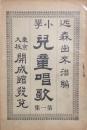 近森出來治編
小學
兒童唱歌
第一集
東京
大阪
開成館發兌